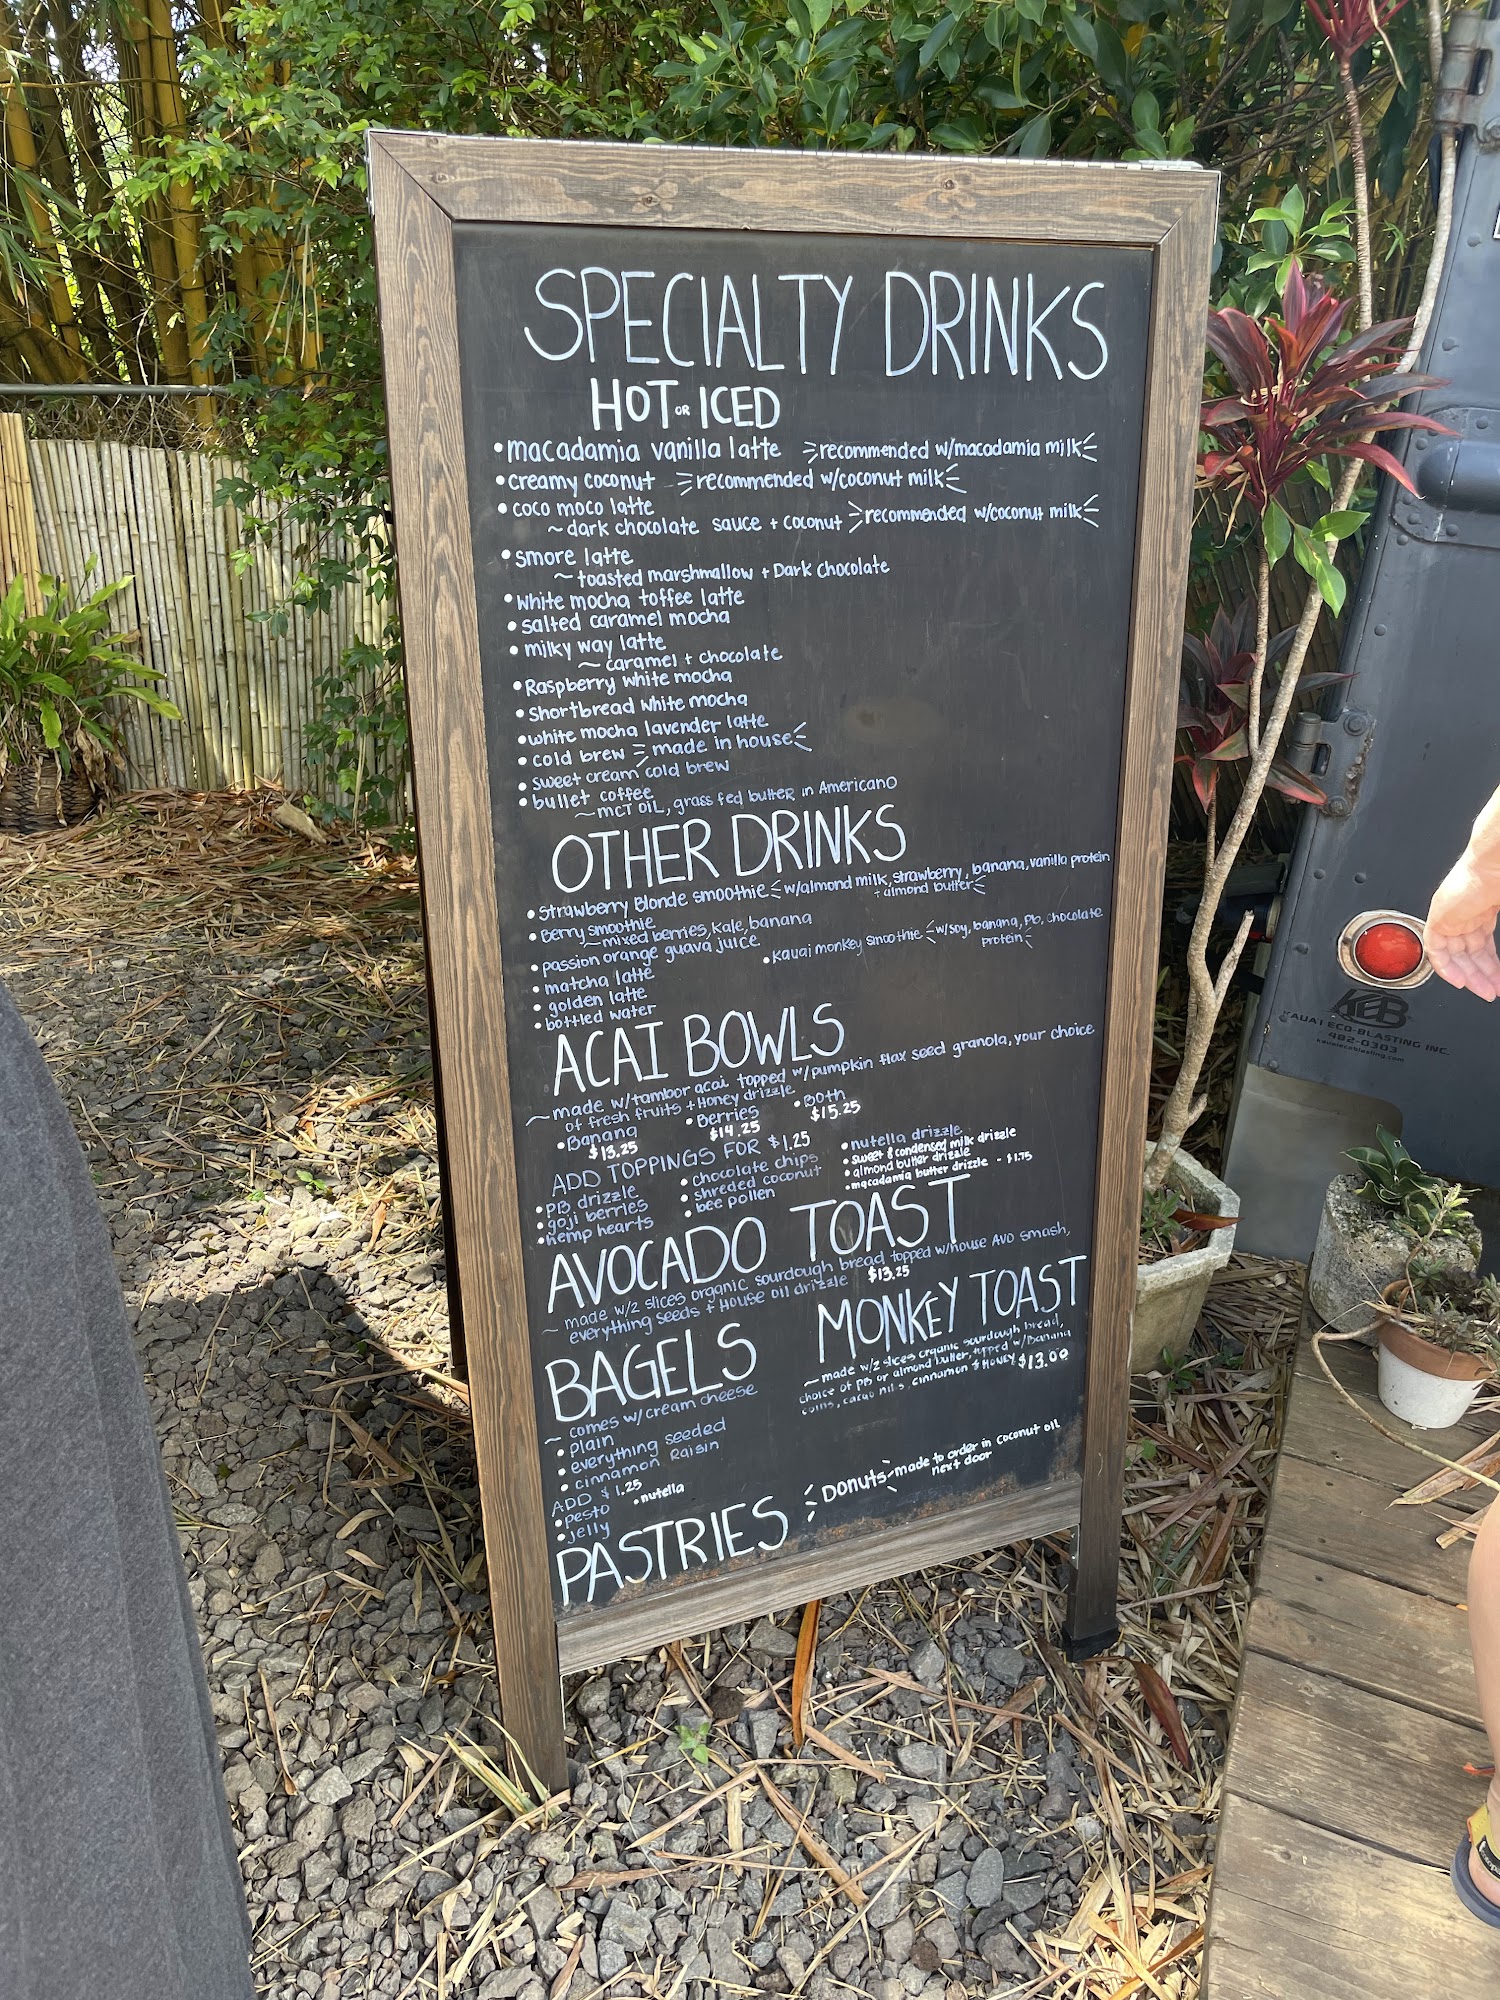 SPECIALTY DRINKS
HOT OR ICED
• macadamia vanilla latte recommended w/macadamia milk
• creamy coconut recommended w/coconut milk
• coco moco latte
~ dark chocolate sauce + coconut recommended w/coconut milk
• smore latte
~ toasted marshmallow + Dark chocolate
• white mocha toffee latte
• salted caramel mocha
• milky way latte
~ caramel + chocolate
• Raspberry white mocha
• Shortbread white mocha
• white mocha lavender latte
• cold brew made in house
• sweet cream cold brew
• bullet coffee
~ MCT OIL, grass fed butter in Americano
OTHER DRINKS
• Strawberry Blonde smoothie w/almond milk, strawberry, banana, vanilla protein
+ almond butter
• Berry smoothie
~ mixed berries, kale, banana
• passion orange guava juice
• kauai monkey smoothie w/soy, banana, PB, chocolate
protein
• matcha latte
• golden latte
• bottled water
ACAI BOWLS
~ made w/tambor acai topped w/pumpkin flax seed granola, your choice
of fresh fruits + Honey drizzle
• Banana • Berries • Both
$13.25 $14.25 $15.25
ADD TOPPINGS FOR $1.25
• PB drizzle
• goji berries
• hemp hearts
• chocolate chips
• shreded coconut
• bee pollen
• nutella drizzle
• sweet & condensed milk drizzle
• almond butter drizzle
• macadamia butter drizzle - $1.75
AVOCADO TOAST
~ made w/2 slices organic sourdough bread topped w/house AVO smash,
everything seeds + House oil drizzle $13.25
MONKEY TOAST
~ made w/2 slices organic sourdough bread,
choice of PB or almond butter, topped w/banana
coins, cacao nibs, cinnamon & HONEY $13.00
BAGELS
~ comes w/cream cheese
• plain
• everything seeded
• cinnamon Raisin
ADD $1.25
• pesto • nutella
• jelly
PASTRIES
Donuts - made to order in coconut oil
next door
KEB
KAUA'I ECO-BLASTING INC.
482-0303
kauaiecoblasting.com